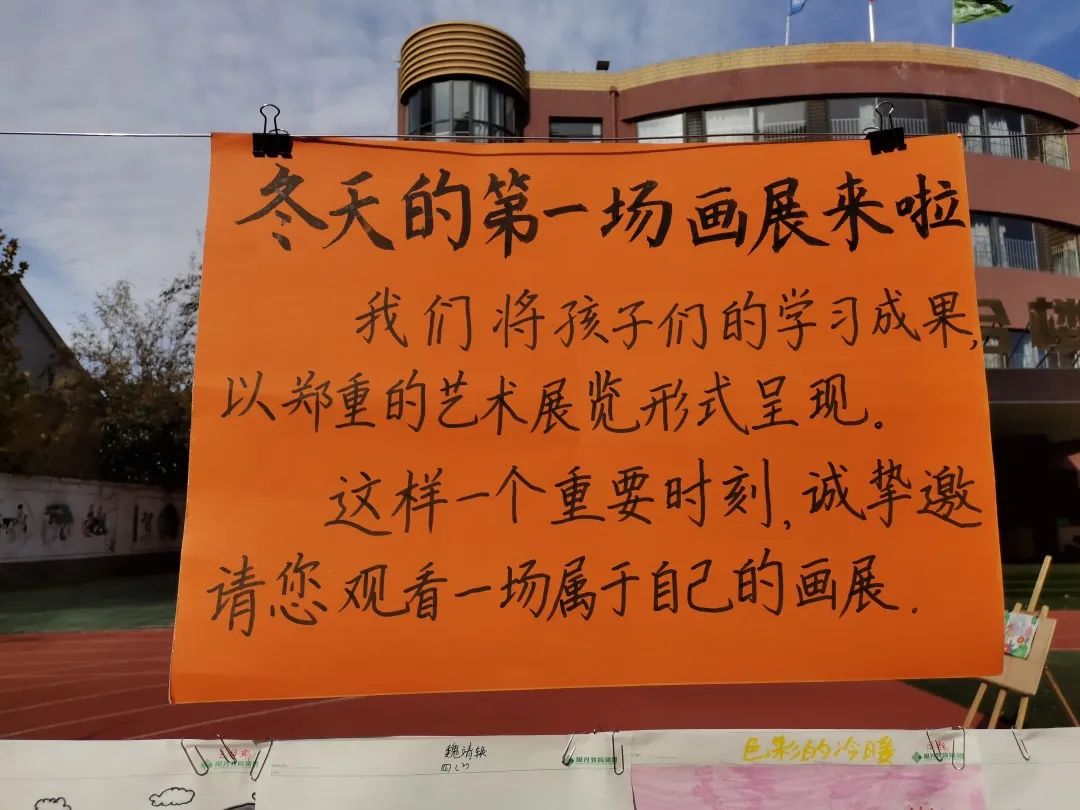 冬天的第一场画展来啦
我们将孩子们的学习成果,
以郑重的艺术展览形式呈现。
这样一个重要时刻,诚挚邀
请您观看一场属于自己的画展.
色彩的冷暖